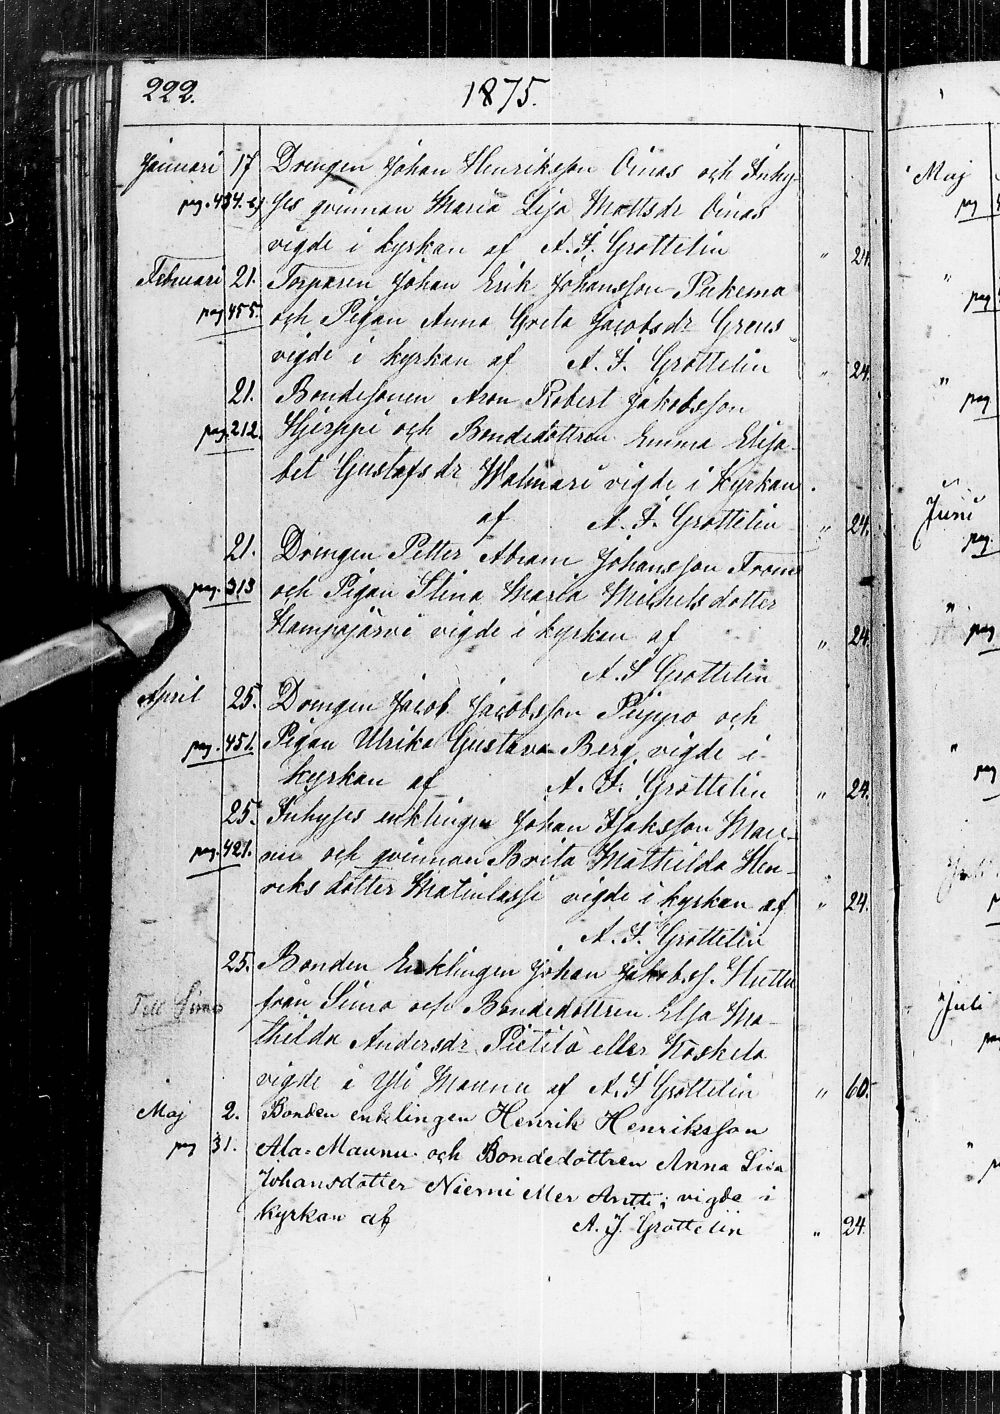 222. 1875.
Januari 17 Drengen Johan Henriksson Oinas och Inhy-
pag. 434. ses qvinnan Maria Lisa Mattsdr Oinas
vigde i kyrkan af A. F. Grottelin " 24.
Februari 21. Torparen Johan Erik Johansson Pukema
pag 455. och Pigan Anna Greta Jacobsdr Grens
vigde i kyrkan af A. F. Grottelin " 24.
21. Bondesonen Aron Robert Jakobsson
pag. 212. Hjerppe och Bondedottren Emma Elisa-
bet Gustafsdr Walmari vigde i Kyrkan
af A. F. Grottelin " 24.
21. Drengen Petter Abram Johansson From
pag. 313 och Pigan Stina Maria Michelsdotter
Hampajärvi vigde i kyrkan af " 24.
A. F Grottelin
April 25. Drengen Jacob Jacobsson Puppo och
pag. 451. Pigan Ulrika Gustava Berg vigde i
kyrkan af A. F. Grottelin " 24.
25. Inhyses enklingen Johan Isaksson Mau-
pag. 421. nu och qvinnan Brita Mathilda Hen-
riks dotter Matinlassi vigde i kyrkan af " 24.
A. F. Grottelin
25. Bonden Enklingen Johan Jakobss. Huttu
Till Simo från Simo och Bondedottren Elsa Ma-
thilda Andersdr Pietilä eller Koskela
vigde i Yli Maunu af A. F Grottelin " 60.
Maj 2. Bonden enklingen Henrik Henriksson
pag 31. Ala-Maunu och Bondedottren Anna Lisa
Johansdotter Niemi eller Antti; vigda i
kyrkan af A. F. Grottelin " 24.
Maj
pag
"
pag
"
pag.
Juni
pag.
"
pag
"
pag
Juli
"